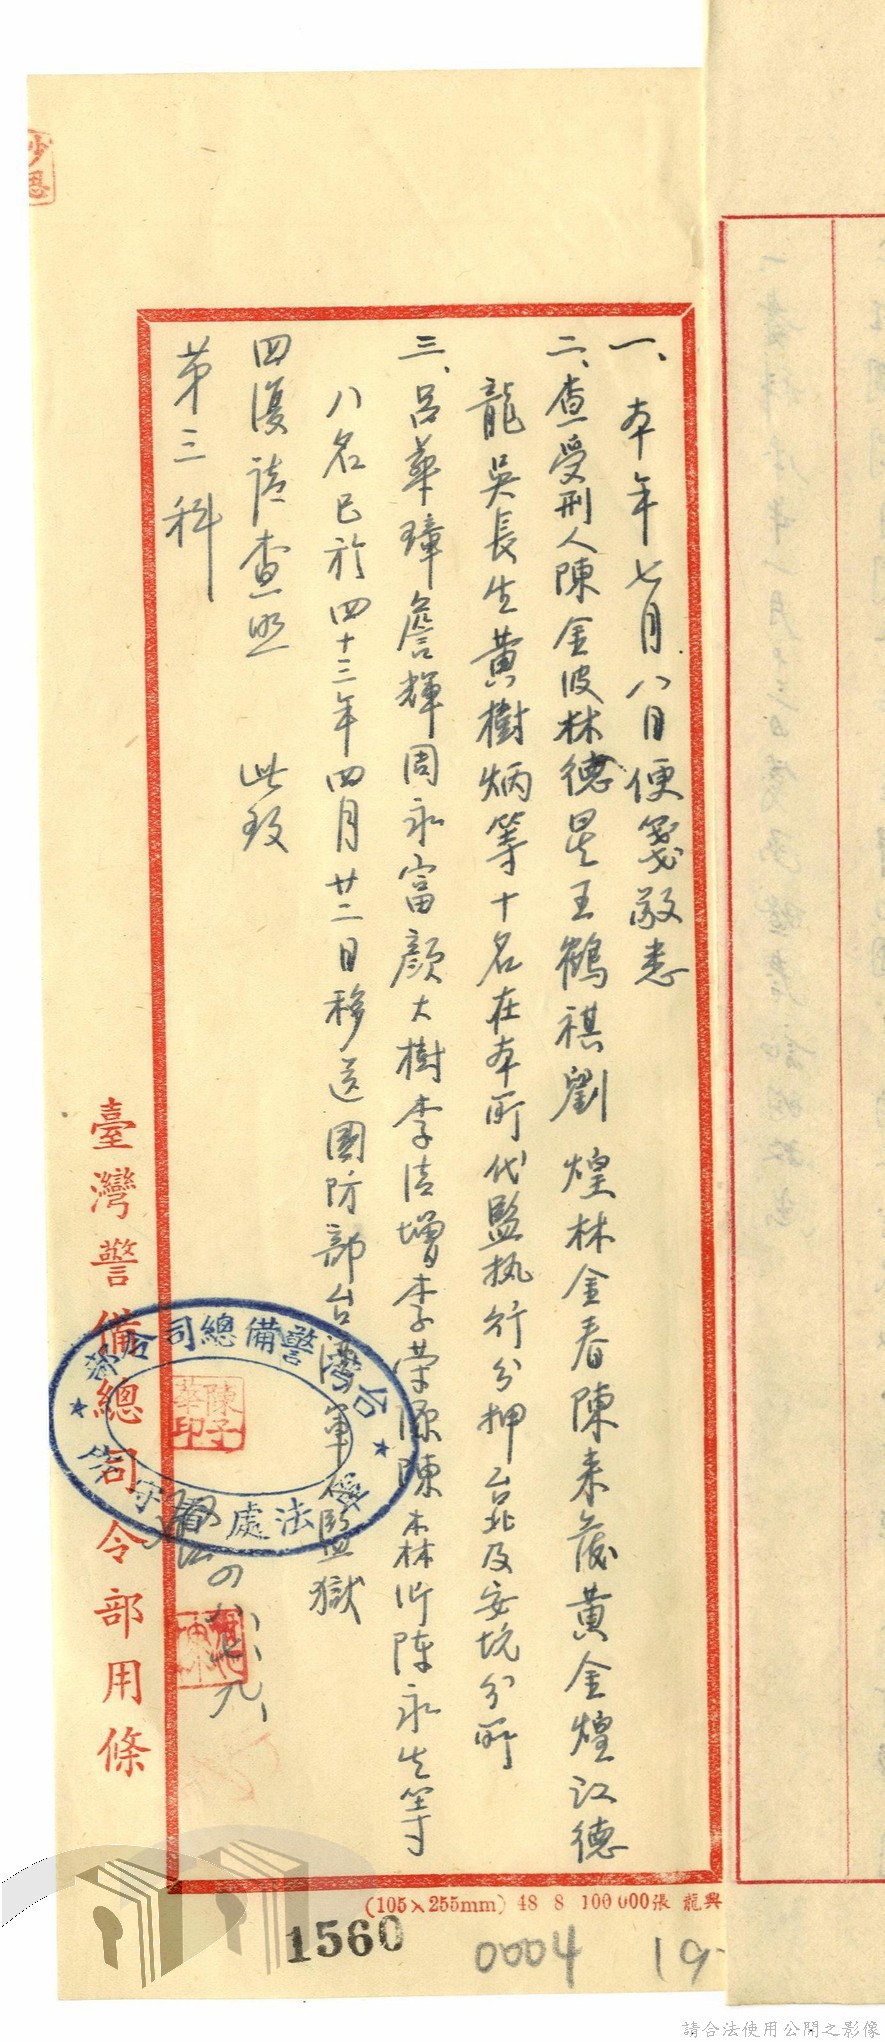 一、本年七月八日便箋敬悉
二、查受刑人陳金波林德昱王鶴祺劉煌林金春陳來成黃金煌江德
龍吳長生黃樹炳等十名在本所代監执行分押台北及安坑分所
三、呂華璋詹輝周永富顏大樹李清增李荣源陳森炘陳永生等
八名已於四十三年四月廿二日移送國防部台灣軍人監獄
四復請查照 此致
第三科
台灣警備總司令部
軍法處看守所
陳子華印
臺灣警備總司令部用條
(105×255mm) 48 8 100000張 龍興
1560
0004
19
請合法使用公開之影像